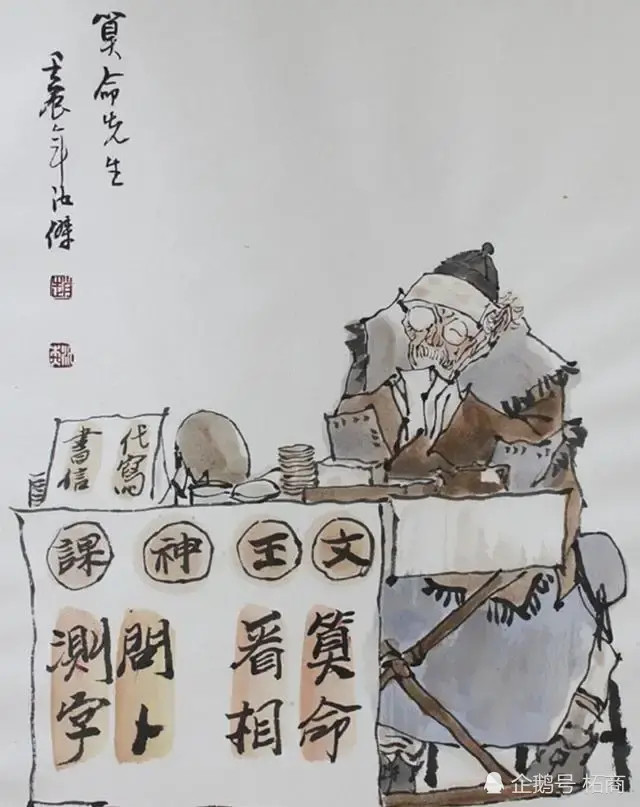 算命先生
壬辰年傑
代寫
書信
文王神課
算命
看相
問卜
測字
企鹅号 柘商